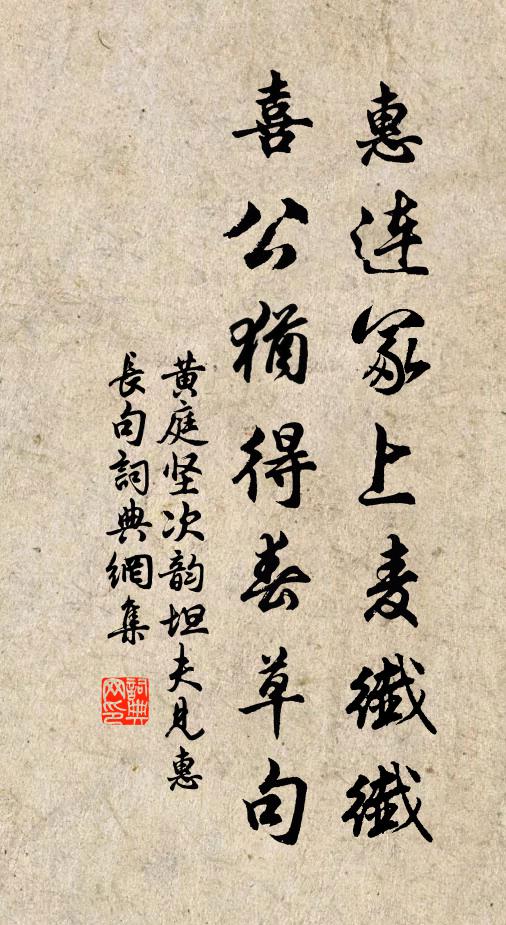 惠连冢上麦纖纖
喜公猶得春草句
黄庭坚次韵坦夫見惠
長句詞典網集
詞典
网印